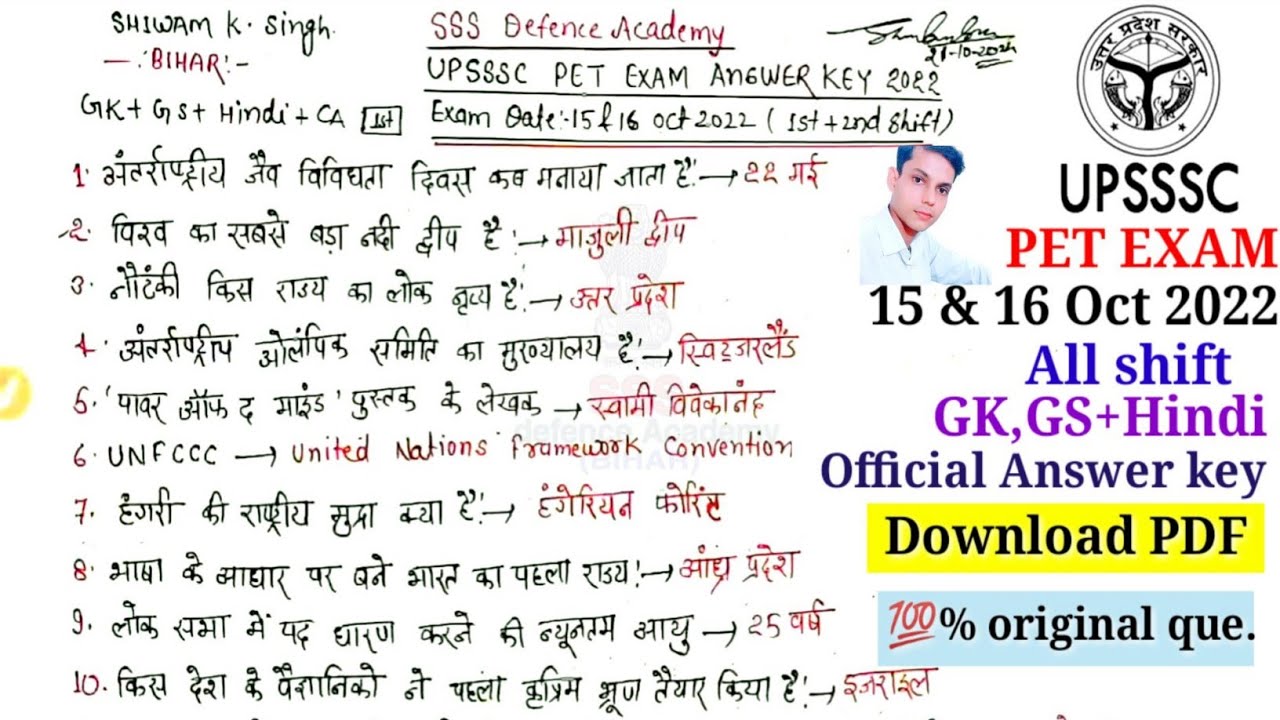 SHIWAM K. Singh.
-: BIHAR :-
GK + GS + Hindi + CA 1st
SSS Defence Academy
21-10-2022
UPSSSC PET EXAM ANSWER KEY 2022
Exam Date:-15 & 16 Oct 2022 ( 1st + 2nd Shift)
1. अंतर्राष्ट्रीय जैव विविधता दिवस कब मनाया जाता है:→ 22 मई
2. विश्व का सबसे बड़ा नदी द्वीप है:→ माजुली द्वीप
3. नौटंकी किस राज्य का लोक नृत्य है:→ उत्तर प्रदेश
4. अंतर्राष्ट्रीय ओलंपिक समिति का मुख्यालय है:→ स्विट्जरलैंड
5. 'पावर ऑफ द माइंड' पुस्तक के लेखक → स्वामी विवेकानंद
6. UNFCCC → United Nations Framework Convention
7. हंगरी की राष्ट्रीय मुद्रा क्या है:→ हंगेरियन फोरिंट
8. भाषा के आधार पर बने भारत का पहला राज्य:→ आंध्र प्रदेश
9. लोक सभा में पद धारण करने की न्यूनतम आयु → 25 वर्ष
10. किस देश के वैज्ञानिको ने पहला कृत्रिम भ्रूण तैयार किया है:→ इजराइल
SSS
defence Academy
(BIHAR)
उत्तर प्रदेश सरकार
UPSSSC
PET EXAM
15 & 16 Oct 2022
All shift
GK,GS+Hindi
Official Answer key
Download PDF
💯% original que.